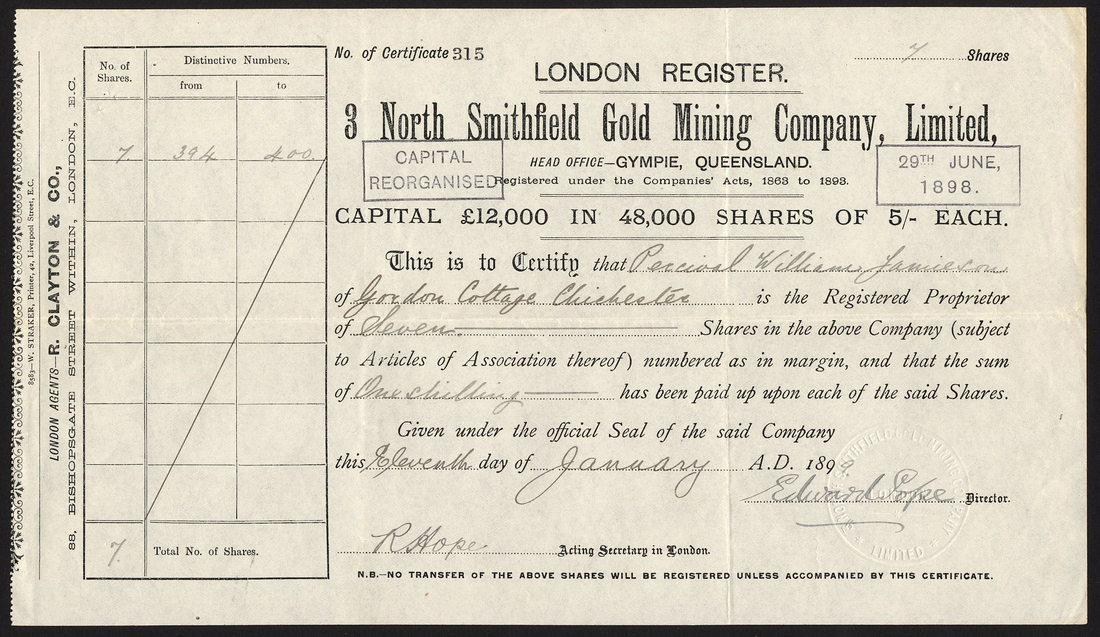 No. of Certificate 315
7 Shares
LONDON REGISTER.
3 North Smithfield Gold Mining Company, Limited,
HEAD OFFICE—GYMPIE, QUEENSLAND.
CAPITAL
REORGANISED
29TH JUNE,
1898.
Registered under the Companies' Acts, 1863 to 1893.
CAPITAL £12,000 IN 48,000 SHARES OF 5/- EACH.
This is to Certify that Percival William Jamieson
of Gordon Cottage Chichester is the Registered Proprietor
of Seven Shares in the above Company (subject
to Articles of Association thereof) numbered as in margin, and that the sum
of One shilling has been paid up upon each of the said Shares.
Given under the official Seal of the said Company
this Eleventh day of January A.D. 1899.
Edward Pope Director.
R Hope Acting Secretary in London.
N.B.—NO TRANSFER OF THE ABOVE SHARES WILL BE REGISTERED UNLESS ACCOMPANIED BY THIS CERTIFICATE.
No. of Shares. Distinctive Numbers.
from to
7. 394 400.
7. Total No. of Shares.
LONDON AGENTS—R. CLAYTON & CO.,
88, BISHOPSGATE STREET WITHIN, LONDON, E.C.
8583—W. STRAKER, Printer, 42, Liverpool Street, E.C.
LIMITED